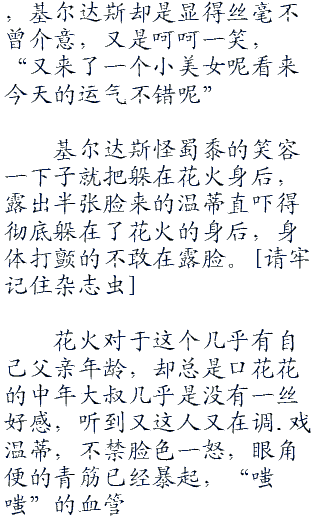 ，基尔达斯却是显得丝毫不
曾介意，又是呵呵一笑，
“又来了一个小美女呢看来
今天的运气不错呢”
基尔达斯怪蜀黍的笑容
一下子就把躲在花火身后，
露出半张脸来的温蒂直吓得
彻底躲在了花火的身后，身
体打颤的不敢在露脸。[请牢
记住杂志虫]
花火对于这个几乎有自
己父亲年龄，却总是口花花
的中年大叔几乎是没有一丝
好感，听到又这人又在调.戏
温蒂，不禁脸色一怒，眼角
便的青筋已经暴起，“嗤
嗤”的血管